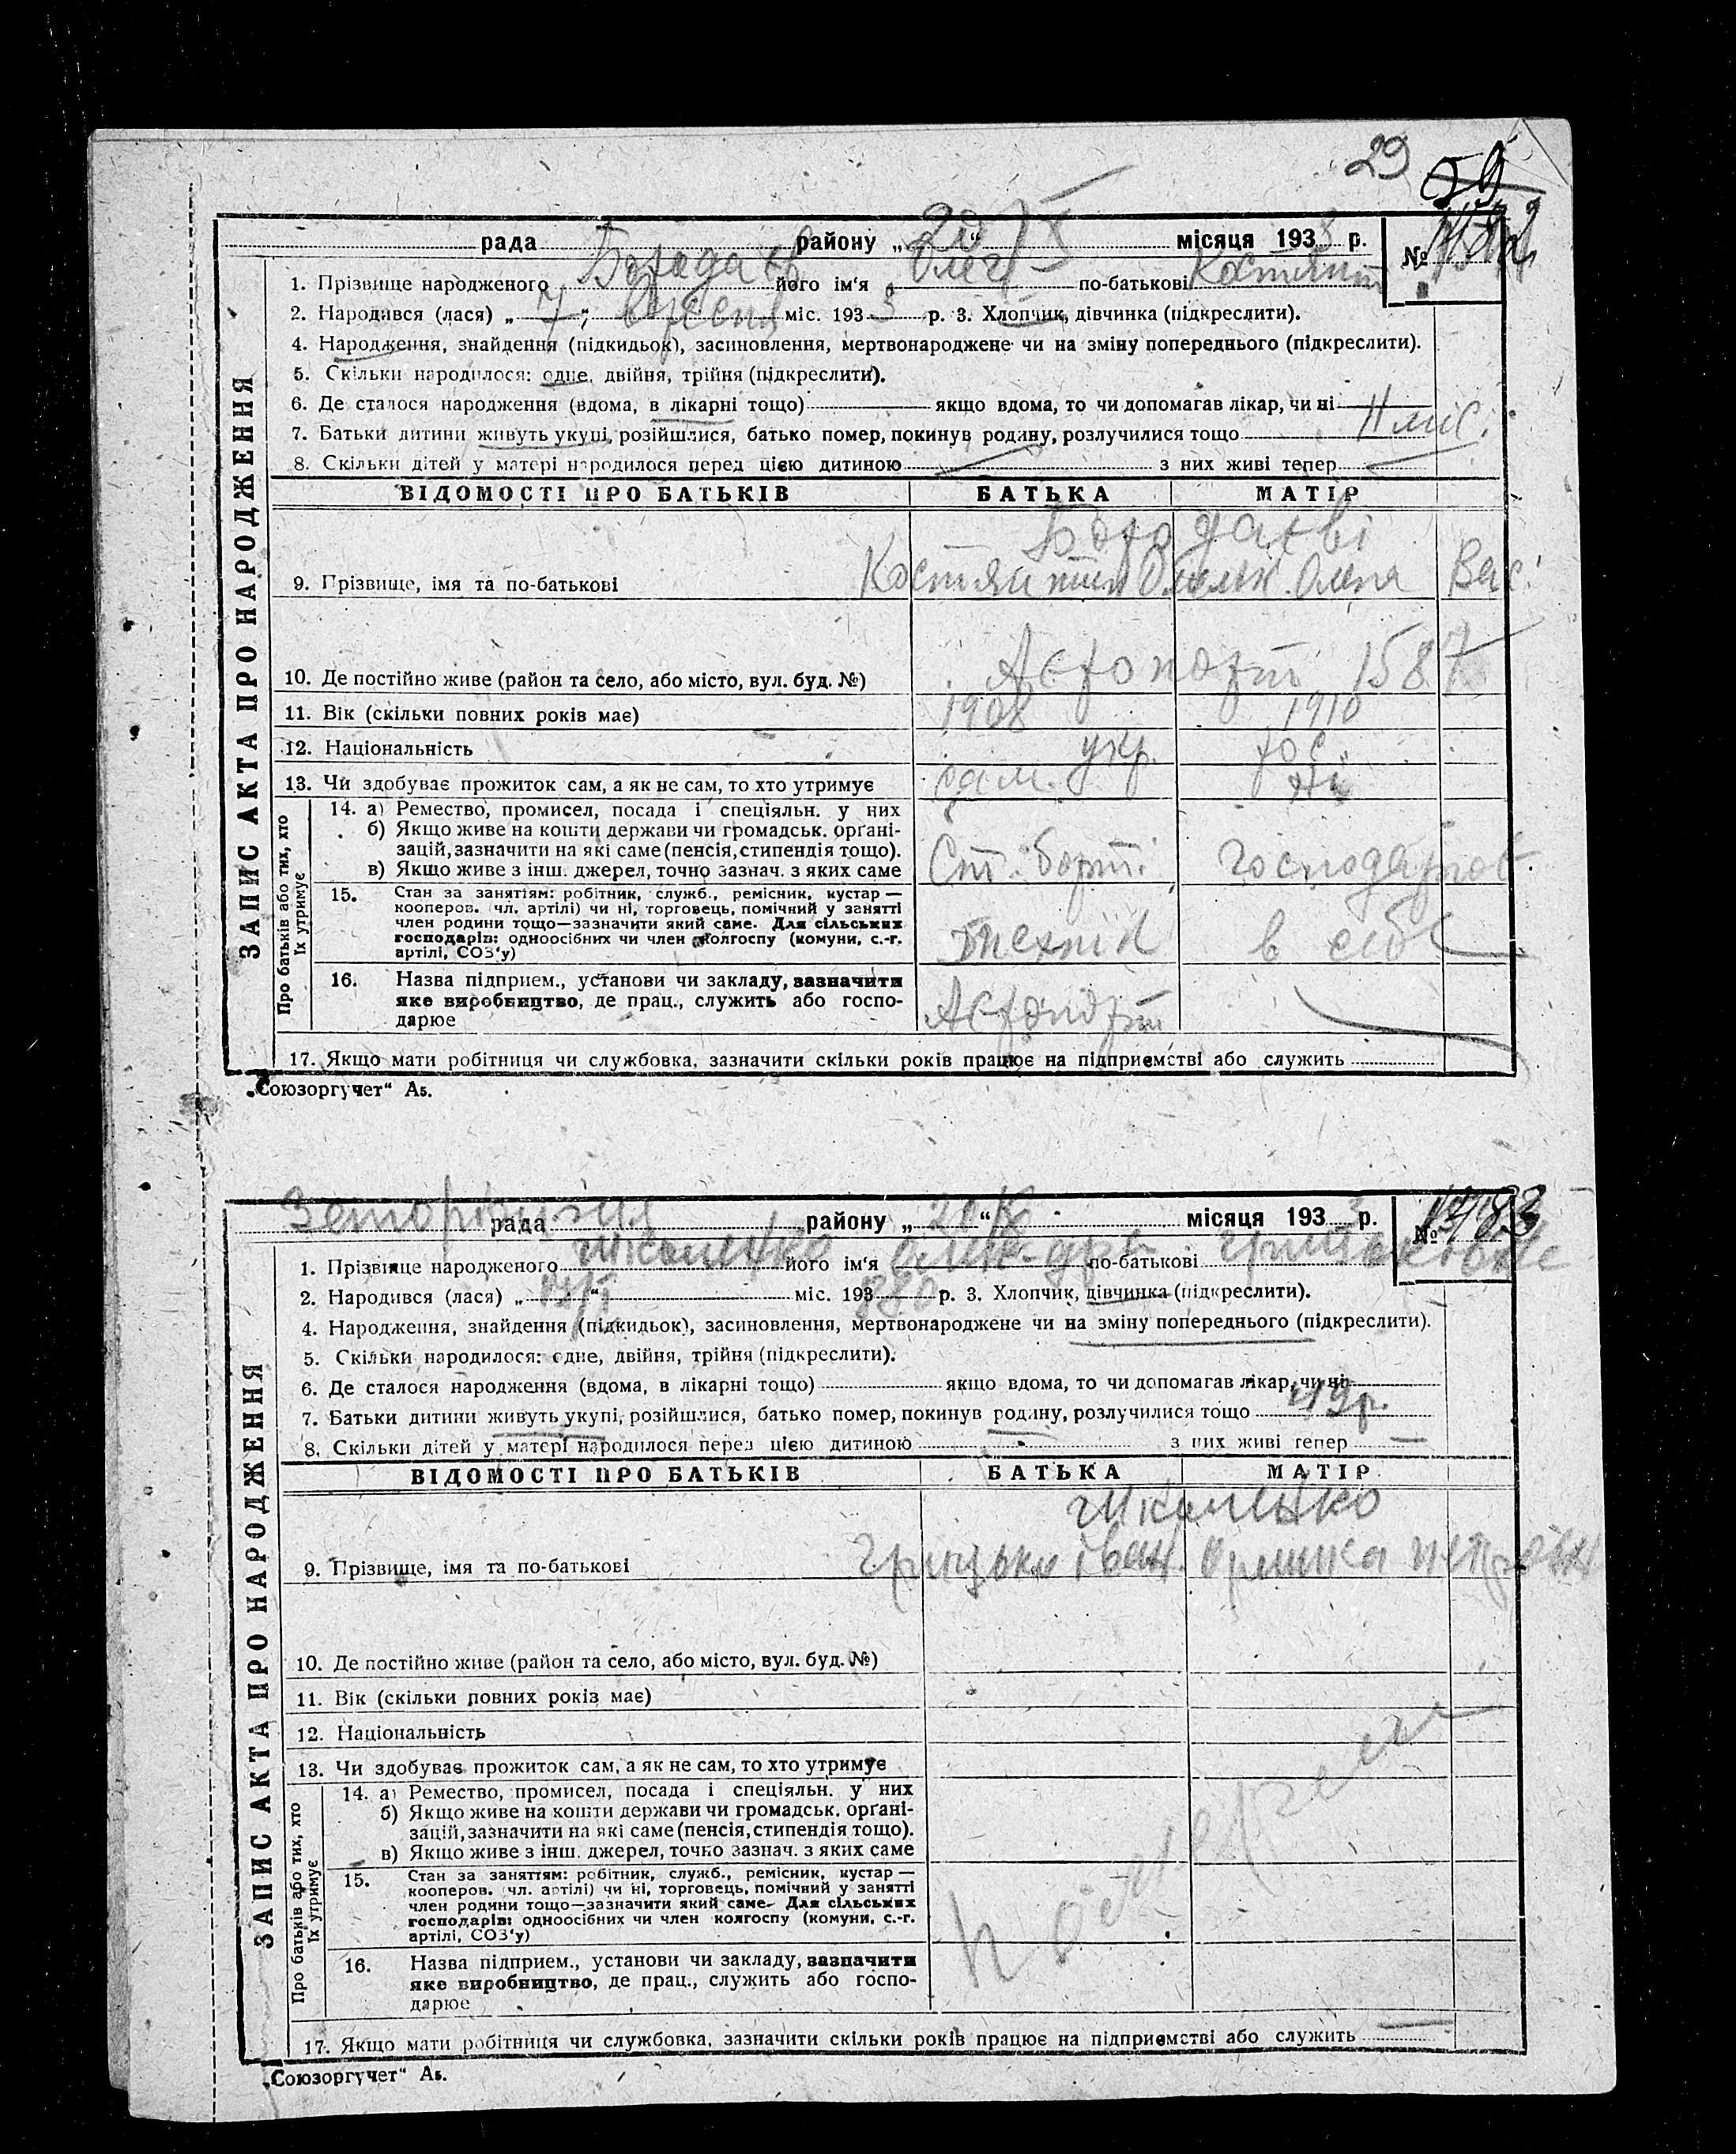 29
рада району „20 IX“ місяця 1933 р.
№
1. Прізвище народженого його ім'я Олег по-батькові Костянт
2. Народився (лася) „7“ Вересня міс. 1933 р. 3. Хлопчик, дівчинка (підкреслити).
4. Народження, знайдення (підкидьок), засиновлення, мертвонароджене чи на зміну попереднього (підкреслити).
5. Скільки народилося: одне, двійня, трійня (підкреслити).
6. Де сталося народження (вдома, в лікарні тощо) якщо вдома, то чи допомагав лікар, чи ні
7. Батьки дитини живуть укупі, розійшлися, батько помер, покинув родину, розлучилися тощо
8. Скільки дітей у матері народилося перед цією дитиною з них живі тепер
ВІДОМОСТІ ПРО БАТЬКІВ БАТЬКА МАТІР
9. Прізвище, імя та по-батькові Олена Вас.
10. Де постійно живе (район та село, або місто, вул. буд. №) Аєропорт 158
11. Вік (скільки повних років має) 1908 1910
12. Національність укр. рос.
13. Чи здобуває прожиток сам, а як не сам, то хто утримує сам.
14. а) Ремество, промисел, посада і спеціяльн. у них
б) Якщо живе на кошти держави чи громадськ. орґані-
зацій, зазначити на які саме (пенсія, стипендія тощо).
в) Якщо живе з інш. джерел, точно зазнач. з яких саме Ст. борт.
15. Стан за заняттям: робітник, служб., ремісник, кустар —
кооперов. чл. артілі) чи ні, торговець, помічний у занятті
член родини тощо—зазначити який саме. Для сільських
господарів: одноосібних чи член колгоспу (комуни, с.-г.
артілі, СОЗ'у) технік в себе
16. Назва підприєм., установи чи закладу, зазначити
яке виробництво, де прац., служить або госпо-
дарює Аєропорт
17. Якщо мати робітниця чи службовка, зазначити скільки років працює на підприємстві або служить
ЗАПИС АКТА ПРО НАРОДЖЕННЯ
Про батьків або тих, хто
їх утримує
„Союзоргучет“ А5.
рада району „20 IX“ місяця 1933 р.
№
1. Прізвище народженого його ім'я по-батькові
2. Народився (лася) „“ міс. 193 р. 3. Хлопчик, дівчинка (підкреслити).
4. Народження, знайдення (підкидьок), засиновлення, мертвонароджене чи на зміну попереднього (підкреслити).
5. Скільки народилося: одне, двійня, трійня (підкреслити).
6. Де сталося народження (вдома, в лікарні тощо) якщо вдома, то чи допомагав лікар, чи ні
7. Батьки дитини живуть укупі, розійшлися, батько помер, покинув родину, розлучилися тощо
8. Скільки дітей у матері народилося перед цією дитиною з них живі тепер
ВІДОМОСТІ ПРО БАТЬКІВ БАТЬКА МАТІР
9. Прізвище, імя та по-батькові Грицько Іван.
10. Де постійно живе (район та село, або місто, вул. буд. №)
11. Вік (скільки повних років має)
12. Національність
13. Чи здобуває прожиток сам, а як не сам, то хто утримує
14. а) Ремество, промисел, посада і спеціяльн. у них
б) Якщо живе на кошти держави чи громадськ. орґані-
зацій, зазначити на які саме (пенсія, стипендія тощо).
в) Якщо живе з інш. джерел, точно зазнач. з яких саме
15. Стан за заняттям: робітник, служб., ремісник, кустар —
кооперов. чл. артілі) чи ні, торговець, помічний у занятті
член родини тощо—зазначити який саме. Для сільських
господарів: одноосібних чи член колгоспу (комуни, с.-г.
артілі, СОЗ'у)
16. Назва підприєм., установи чи закладу, зазначити
яке виробництво, де прац., служить або госпо-
дарює
17. Якщо мати робітниця чи службовка, зазначити скільки років працює на підприємстві або служить
ЗАПИС АКТА ПРО НАРОДЖЕННЯ
Про батьків або тих, хто
їх утримує
„Союзоргучет“ А5.